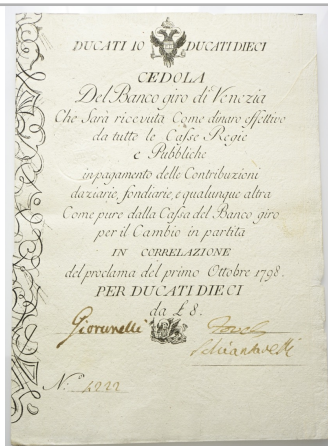 DUCATI 10 DUCATI DIECI
CEDOLA
Del Banco giro di Venezia
Che Sarà ricevuta Come dinaro effettivo
da tutto le Casse Regie
e Pubbliche
in pagamento delle Contribuzioni
daziarie, fondiarie, e qualunque altra
Come pure dalla Cassa del Banco giro
per il Cambio in partita
IN CORRELAZIONE
del proclama del primo Ottobre 1798.
PER DUCATI DIECI
da £ 8.
Giovanelli
N.o 4222